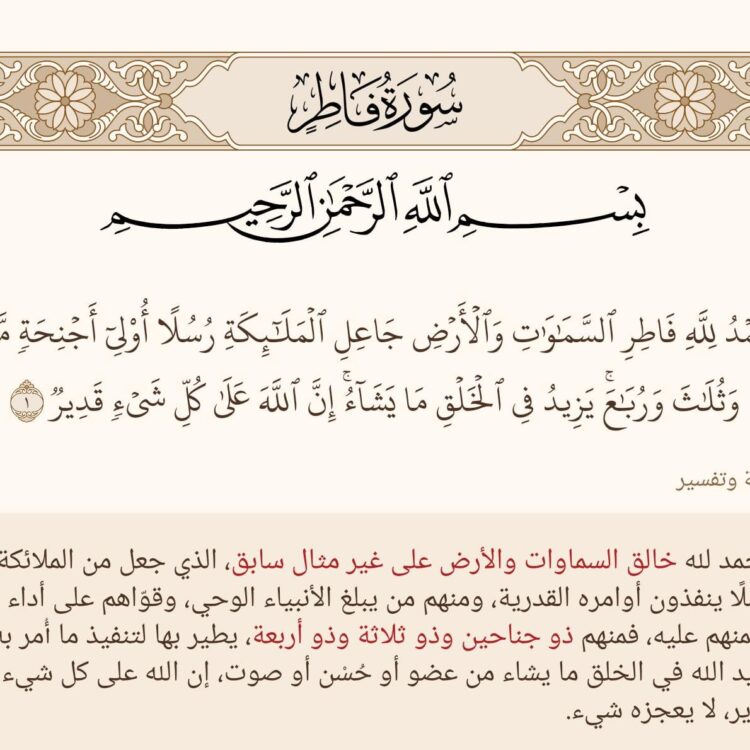 سُورَةُ فَاطِرٍ
بِسْمِ ٱللَّهِ ٱلرَّحْمَٰنِ ٱلرَّحِيمِ
لِلَّهِ فَاطِرِ ٱلسَّمَٰوَٰتِ وَٱلْأَرْضِ جَاعِلِ ٱلْمَلَٰٓئِكَةِ رُسُلًا أُو۟لِىٓ أَجْنِحَةٍ
وَثُلَٰثَ وَرُبَٰعَۚ يَزِيدُ فِى ٱلْخَلْقِ مَا يَشَآءُۚ إِنَّ ٱللَّهَ عَلَىٰ كُلِّ شَىْءٍ قَدِيرٌ ١
وتفسير
لله خالق السماوات والأرض على غير مثال سابق، الذي جعل من الملائكة
ينفذون أوامره القدرية، ومنهم من يبلغ الأنبياء الوحي، وقوّاهم على أداء
عليه، فمنهم ذو جناحين وذو ثلاثة وذو أربعة، يطير بها لتنفيذ ما أُمر
الله في الخلق ما يشاء من عضو أو حُسْن أو صوت، إن الله على كل شيء
لا يعجزه شيء.